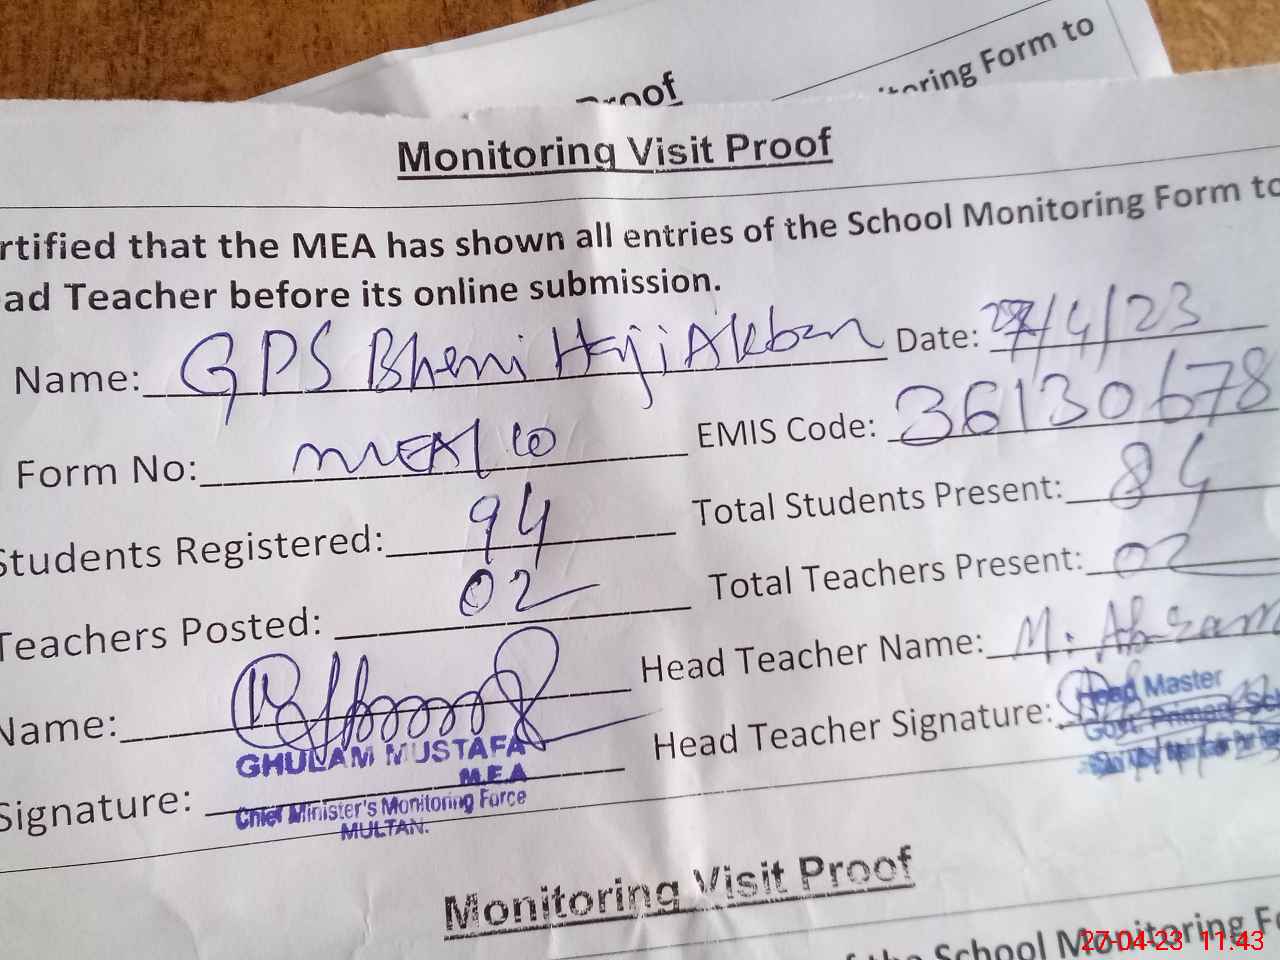 Proof
toring Form to
Monitoring Visit Proof
rtified that the MEA has shown all entries of the School Monitoring Form to
ad Teacher before its online submission.
Name: GPS Bheni Haji Akbar Date: 27/4/23
Form No: MEA/10 EMIS Code: 36130678
Students Registered: 94 Total Students Present: 84
Teachers Posted: 02 Total Teachers Present: 02
Name: Head Teacher Name: M.
Signature: Head Teacher Signature:
Head Master
Govt. Primary Sc
GHULAM MUSTAFA
M.E.A
Chief Minister's Monitoring Force
MULTAN.
Monitoring Visit Proof
of the School Monitoring Fo
27-04-23 11:43